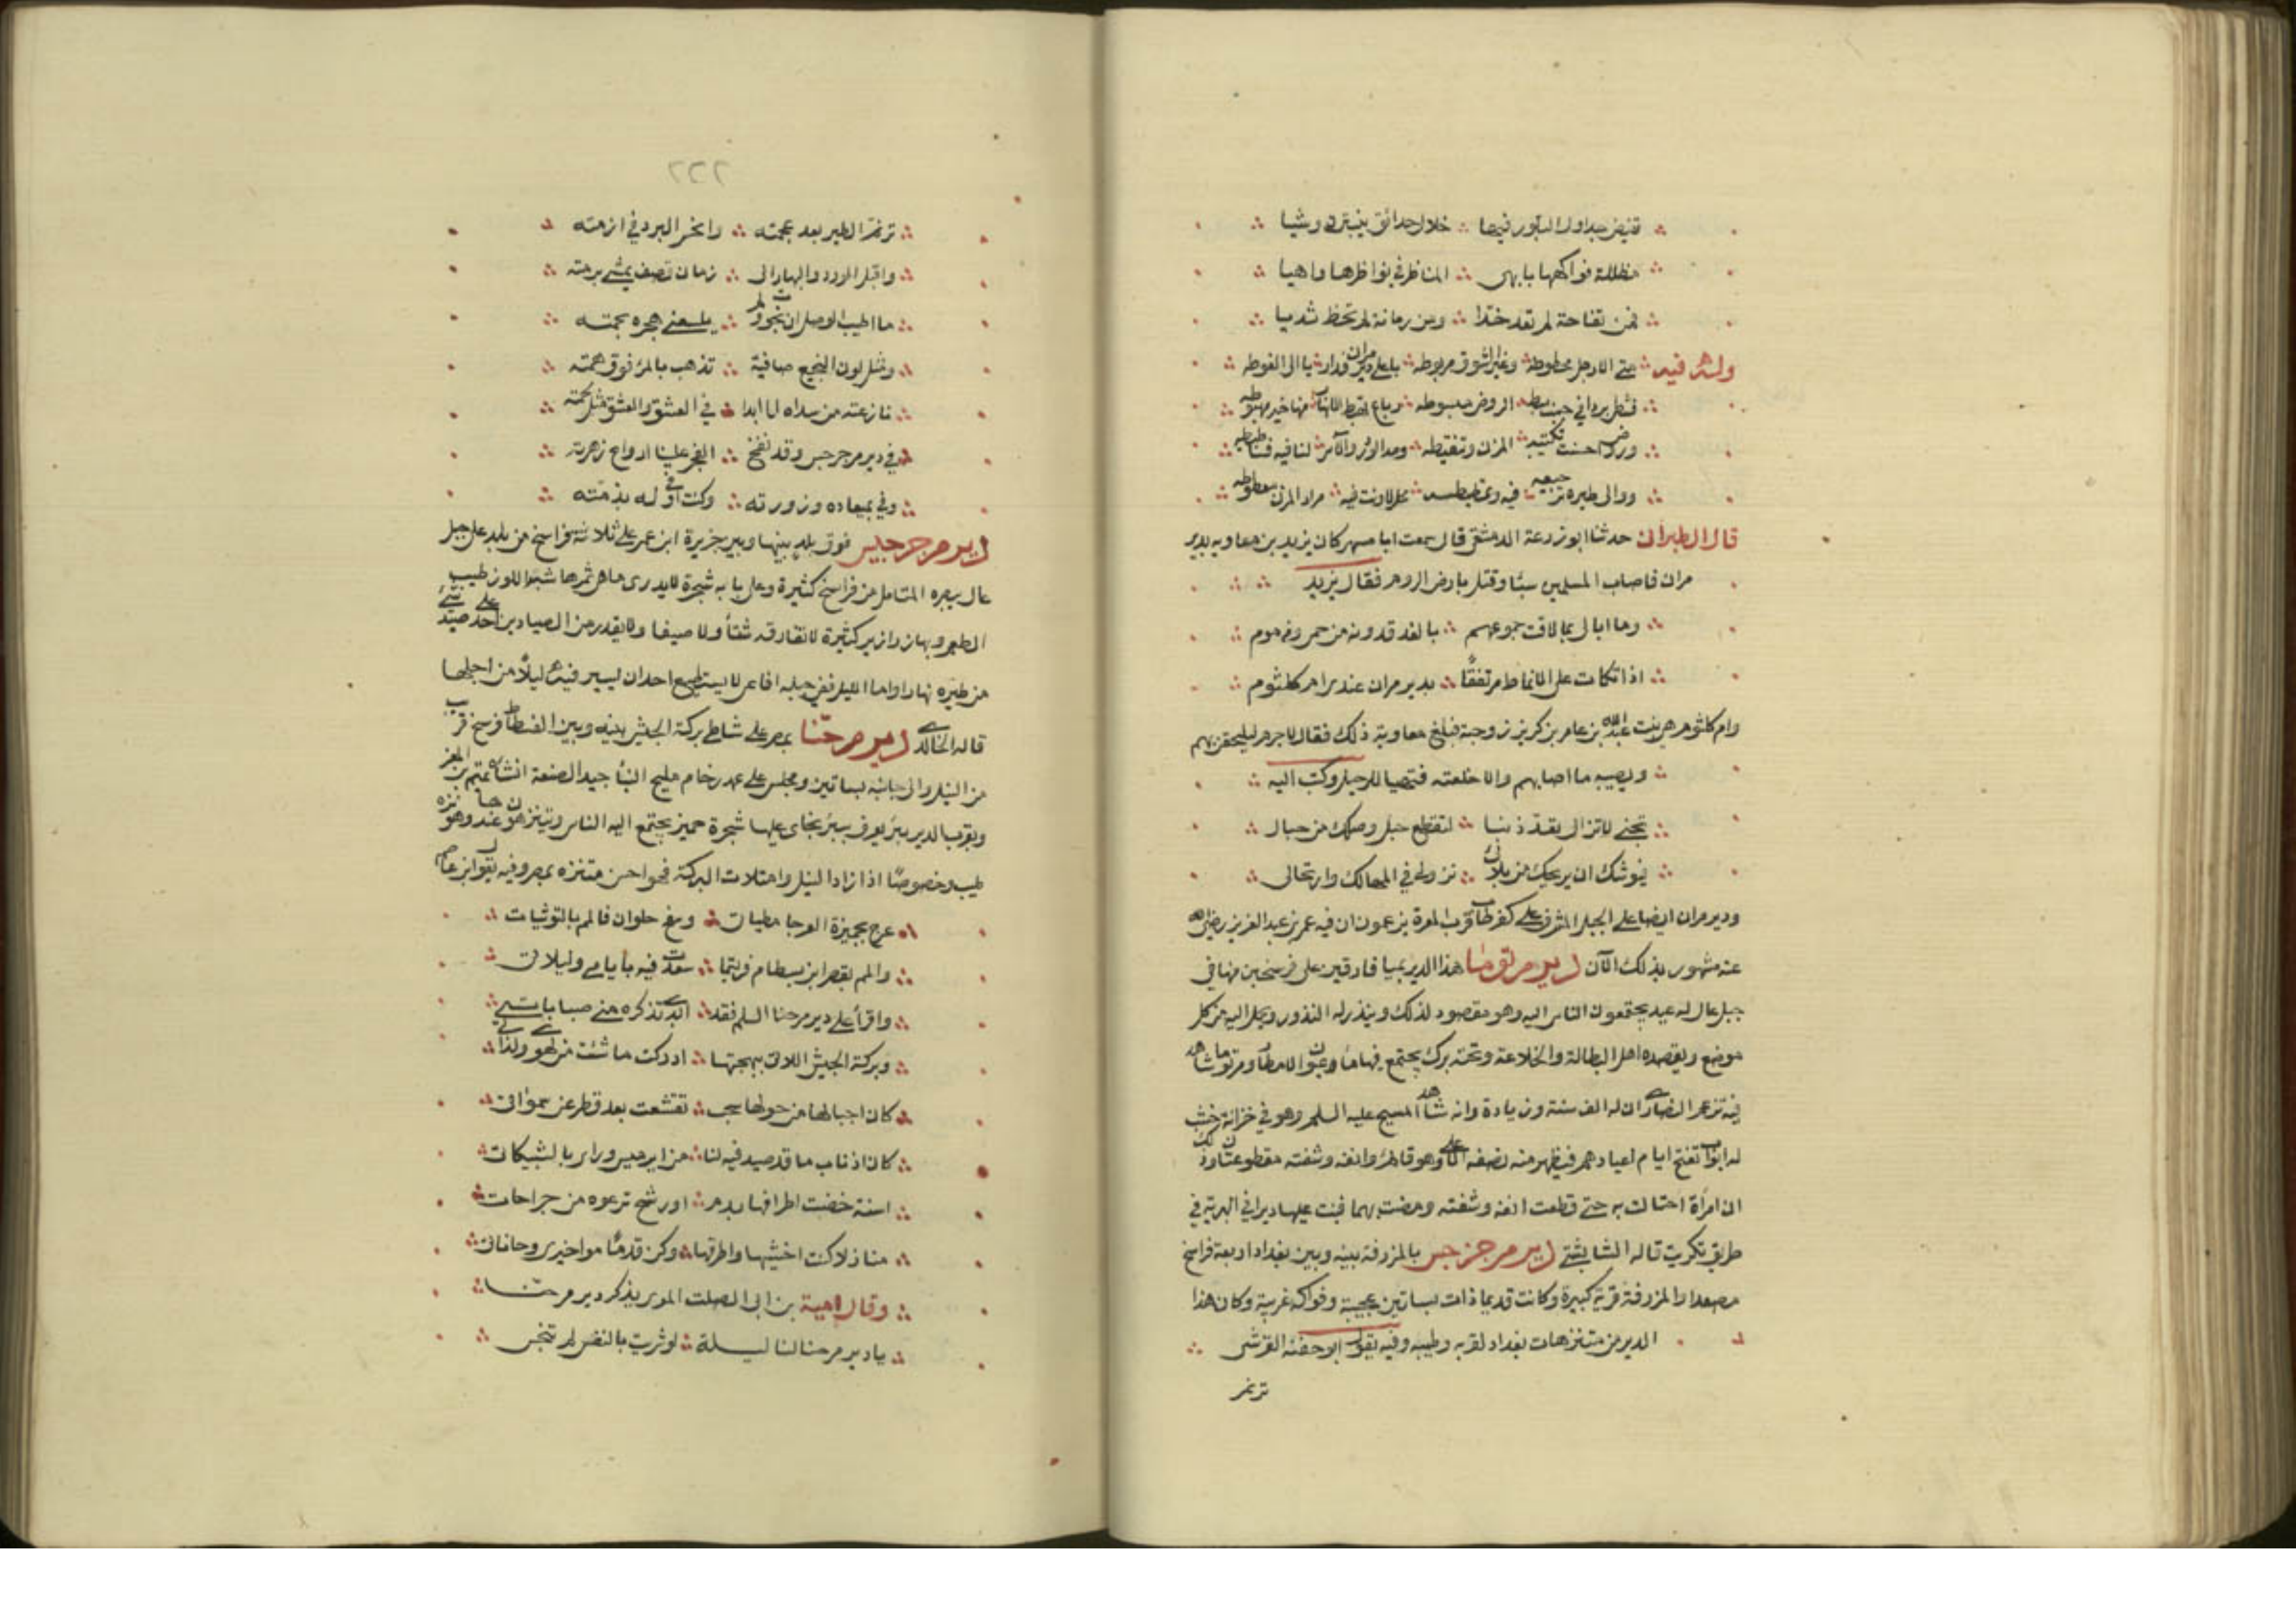 تفيض جداول البلور فيها خلال حدائق ينبتن وشيا
مظللة فواكهها بابهى المناظر في نواظرها واهيا
فمن تفاحة لم تعد خدا ومن رمانة لم تحظ ثديا
وله فيه متى الارحل محطوطه وعير الشوق مربوطه باعلى دير مران فداريا الى الغوطه
فشطي بردى في جنب بسط الروض مبسوطه رباع تهبط الانهار منها خير مهبوطه
وروض احسنت تكتيبه المزن وتنقيطه ومد الورد والآس لنا فيه فساطيطه
ووالى طيره ترجيعه فيه وتمطيطه محل لا ونت فيه مراد المزن معطوطه
قال الطبراني حدثنا ابو زرعة الدمشقي قال سمعت ابا مسهر كان يزيد بن معاويه بدير
مران فاصاب المسلمين سبا وقتل بارض الروم فقال يزيد
وما ابالي بما لاقت جموعهم بالغذقدونه من حمى ومن موم
اذا اتكات على الانماط مرتفقا بدير مران عندي ام كلثوم
وام كلثوم هي بنت عبد الله بن عامر بن كريز زوجته فبلغ معاوية ذلك فقال لا جرم ليلحقن بهم
ويصيبه ما اصابهم والا خلعته فتهيا للرحيل وكتب اليه
تجنى لا تزال تعد ذنبا لتقطع حبل وصلك من حبالي
فيوشك ان يريحك من بلائي نزولي في المهالك وارتحالي
ودير مران ايضا على الجبل المشرف على كفرطاب قرب المعرة يزعمون ان فيه عمر بن عبد العزيز رضى الله
عنه مشهور بذلك الآن دير مر توما هذا الدير بميافارقين على فرسخين منها في
جبل عال له عيد يجتمعون الناس اليه وهو مقصود لذلك وينذر له النذور ويحمل اليه من كل
موضع ويقصده اهل البطالة والخلاعة وتحته برك يجتمع فيها ماء الامطار ومرتوما شاهد
فيه تزعم النصارى ان له الف سنة وزيادة وانه شاهد المسيح عليه السلم وهو في خزانة خشب
له ابواب تفتح ايام اعيادهم فيظهر منه نصفه الاعلى وهو قائم وانفه وشفته مقطوعتان وذلك
ان امرأة احتالت به حتى قطعت انفه وشفته ومضت بهما فبنت عليها ديرا في البرية في
طريق تكريت قاله الشابشتي دير مر جرجس بالمزرفة بينه وبين بغداد اربعة فراسخ
مصعدا والمزرفة قرية كبيرة وكانت قديما ذات بساتين عجيبة وفواكه غريبة وكان هذا
الدير من متنزهات بغداد لقربه وطيبه وفيه يقول ابو جفنه القرشي
ترنم
٢٢٢
ترنم الطير بعد عجمته وانحسر البرد في ازمته
واقبل الورد والبهار الى زمان قصف يمشي برمته
ما اطيب الوصل ان نجوت ولم يلسعني هجره بحمته
ومثل لون النجيع صافية تذهب بالمرء فوق همته
نازعته من سداه لي ابدا في العشق والعشق مثل لحمته
في دير مر جرجس وقد نفح الفجر علينا ارواح زهرته
وفي بميعاده وزورته وكنت اوفي له بذمته
دير مر جرجيس فوق بلد بينها وبين جزيرة ابن عمر على ثلاثة فراسخ من بلد على جبل
عال يبصره المتامل من فراسخ كثيرة وعلى بابه شجرة لا يدرى ما هي ثمرها شبه اللوز طيب
الطعم وبها زرازير كثيرة لا تفارقه شتأ ولا صيفا ولا يقدر من الصيادين احد على صيد شئ
من طيره نهارا واما الليل ففي جبله افاعي لا يستطيع احد ان يسير فيه ليلا من اجلها
قاله الخالدي دير مر حنا بمصر على شاطئ بركة الحبش بينه وبين الفسطاط فرسخ قرب
من النيل والى جانبه بساتين ومجلس على عمد رخام مليح البنا جيد الصنعة انشاه تميم بن المعز
وبقرب الدير بئر يعرف ببئر نجاتي عليها شجرة جميز يجتمع اليه الناس ويتنزهون عندها وهو نزه
طيب وخصوصا اذا زاد النيل وامتلات البركة فهو احسن متنزه بمصر وفيه يقول ابن عاصم
عرج بجميزة العرجا مطيات وسفح حلوان فالمم بالتوثيات
والمم بقصر ابن بسطام فربتما سعدت فيه بأيامي وليلاتي
واقرأ على دير مر حنا السلم فقد ابدى تذكره مني صباباتي
وبركة الحبش اللاتي ببهجتها ادركت ما شئت من لهوي ولذاتي
كان اجبالها من حولها سحب تقشعت بعد قطر عن سموات
كان اذناب ما قد صيد فيه لنا من ابرميس وراي بالشبيكات
اسنة خضبت اطرافها بدم او رشح ترعوه من جراحات
منازلا كنت اغشيها واطرقها وكن قدما مواخيري وحاناتي
وقال امية بن ابي الصلت المصري يذكر دير مر حنا
يا دير مر حنا لنا ليلة لو شريت بالنفس لم تبخس